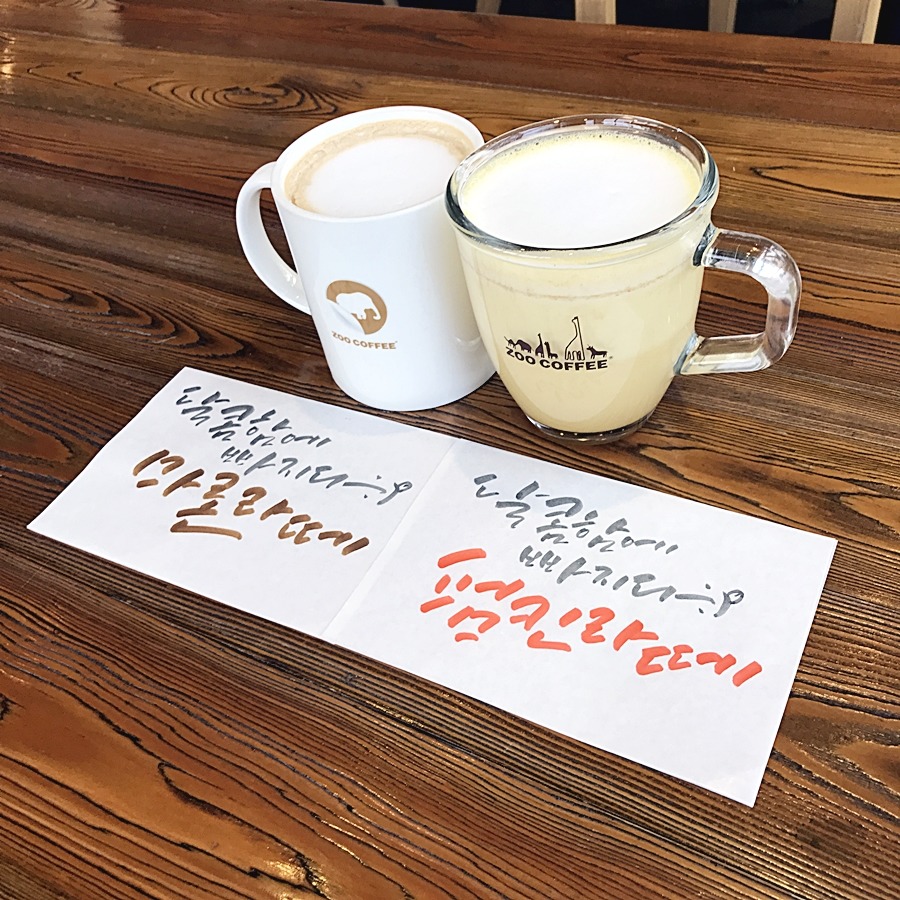 ZOO COFFEE
ZOO COFFEE
달콤함에
빠지다
마론라떼
달콤함에
빠지다
펌킨라떼